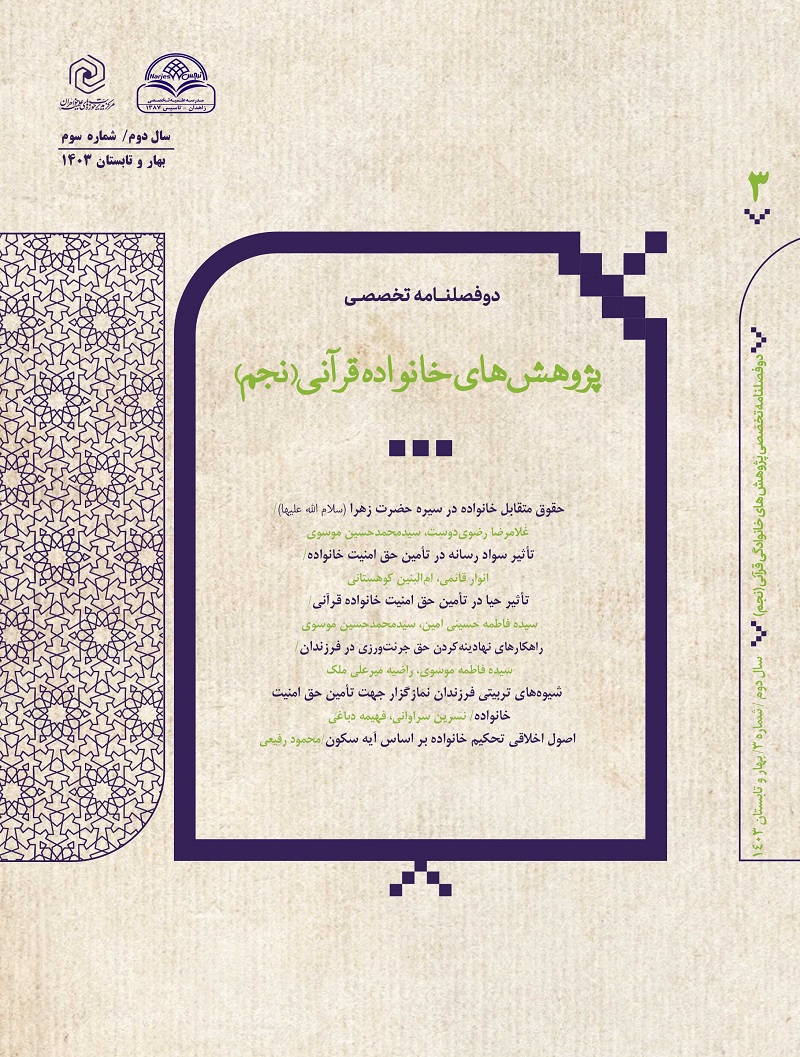 Narjes نرجس
مدرسه علمیه تخصصی
زاهدان - تاسیس ۱۳۸۷
سال دوم/ شماره سوم
بهار و تابستان ۱۴۰۳
۳
دوفصلنامه تخصصی
پژوهش‌های خانواده قرآنی (نجم)
حقوق متقابل خانواده در سیره حضرت زهرا (سلام الله علیها)/
غلامرضا رضوی‌دوست، سیدمحمدحسین موسوی
تأثیر سواد رسانه در تأمین حق امنیت خانواده/
انوار قائمی، ام‌البنین کوهستانی
تأثیر حیا در تأمین حق امنیت خانواده قرآنی/
سیده فاطمه حسینی امین، سیدمحمدحسین موسوی
راهکارهای نهادینه‌کردن حق جرئت‌ورزی در فرزندان/
سیده فاطمه موسوی، راضیه میرعلی ملک
شیوه‌های تربیتی فرزندان نمازگزار جهت تأمین حق امنیت
خانواده/ نسرین سراوانی، فهیمه دباغی
اصول اخلاقی تحکیم خانواده بر اساس آیه سکون/محمود رفیعی
دوفصلنامه تخصصی پژوهش‌های خانوادگی قرآنی (نجم)
سال دوم / شماره ۳/ بهار و تابستان ۱۴۰۳